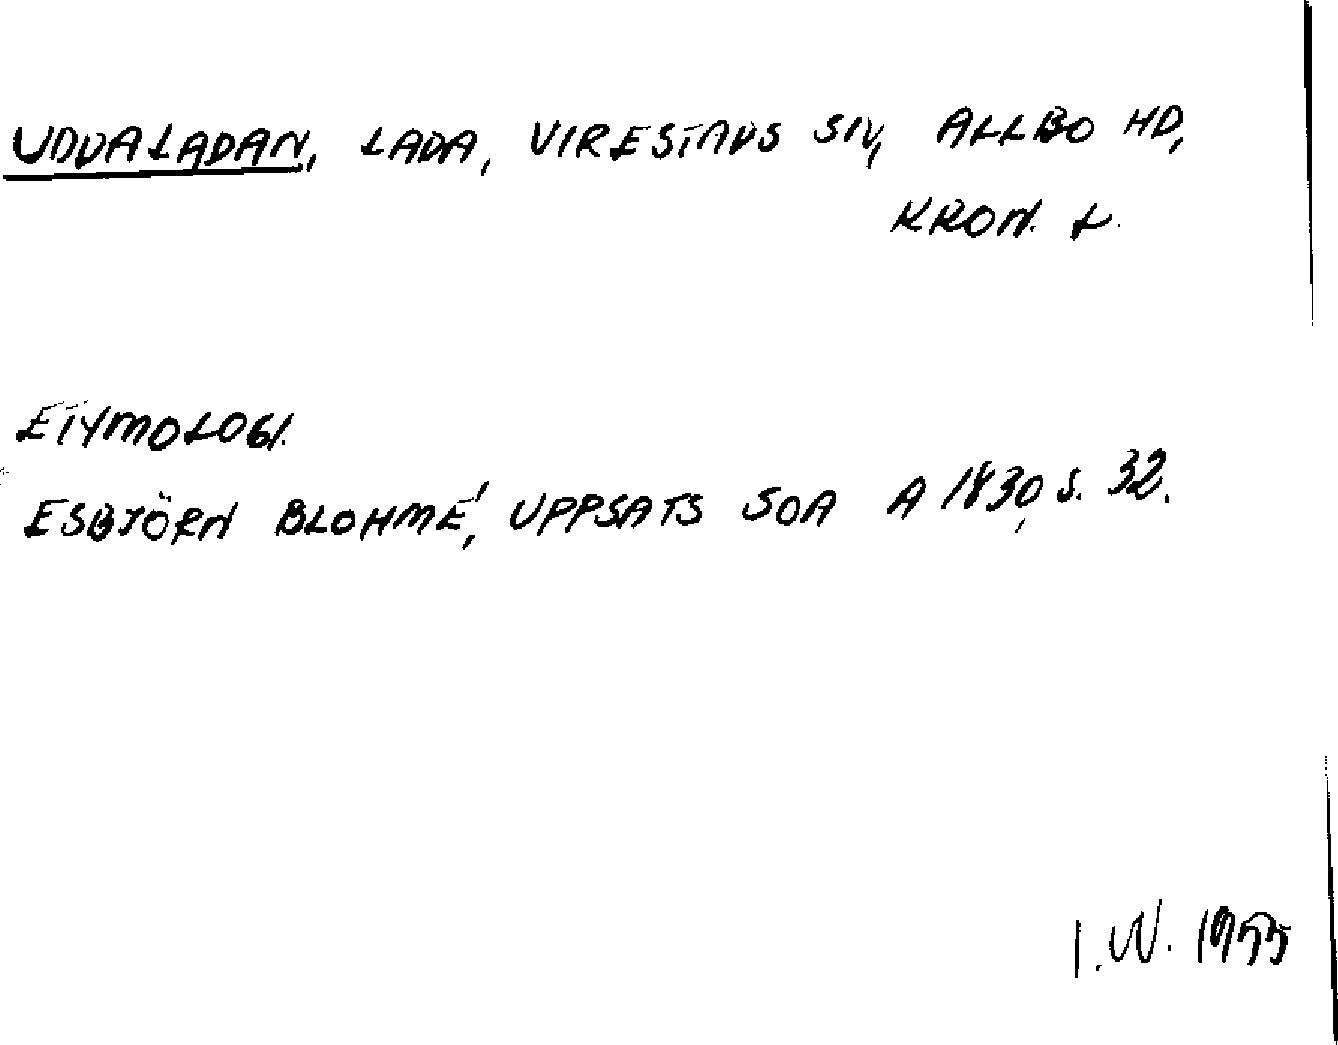 UDDALADAN, LADA, VIRESTADS SN, ALLBO HD,
KRON. L.
ETYMOLOGI.
ESBJÖRN BLOHMÉ, UPPSATS SOA A 1830, S. 32.
I.W. 1955